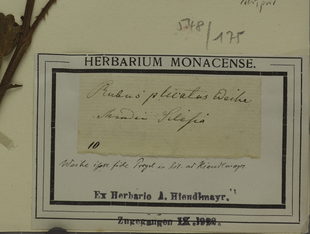 548/175
HERBARIUM MONACENSE.
Rubus plicatus Weihe
Silesia
10
Weihe ipse fide Progel in lit. ad Hiendlmayr.
Ex Herbario A. Hiendlmayr.
Zugegangen IX. 1928.